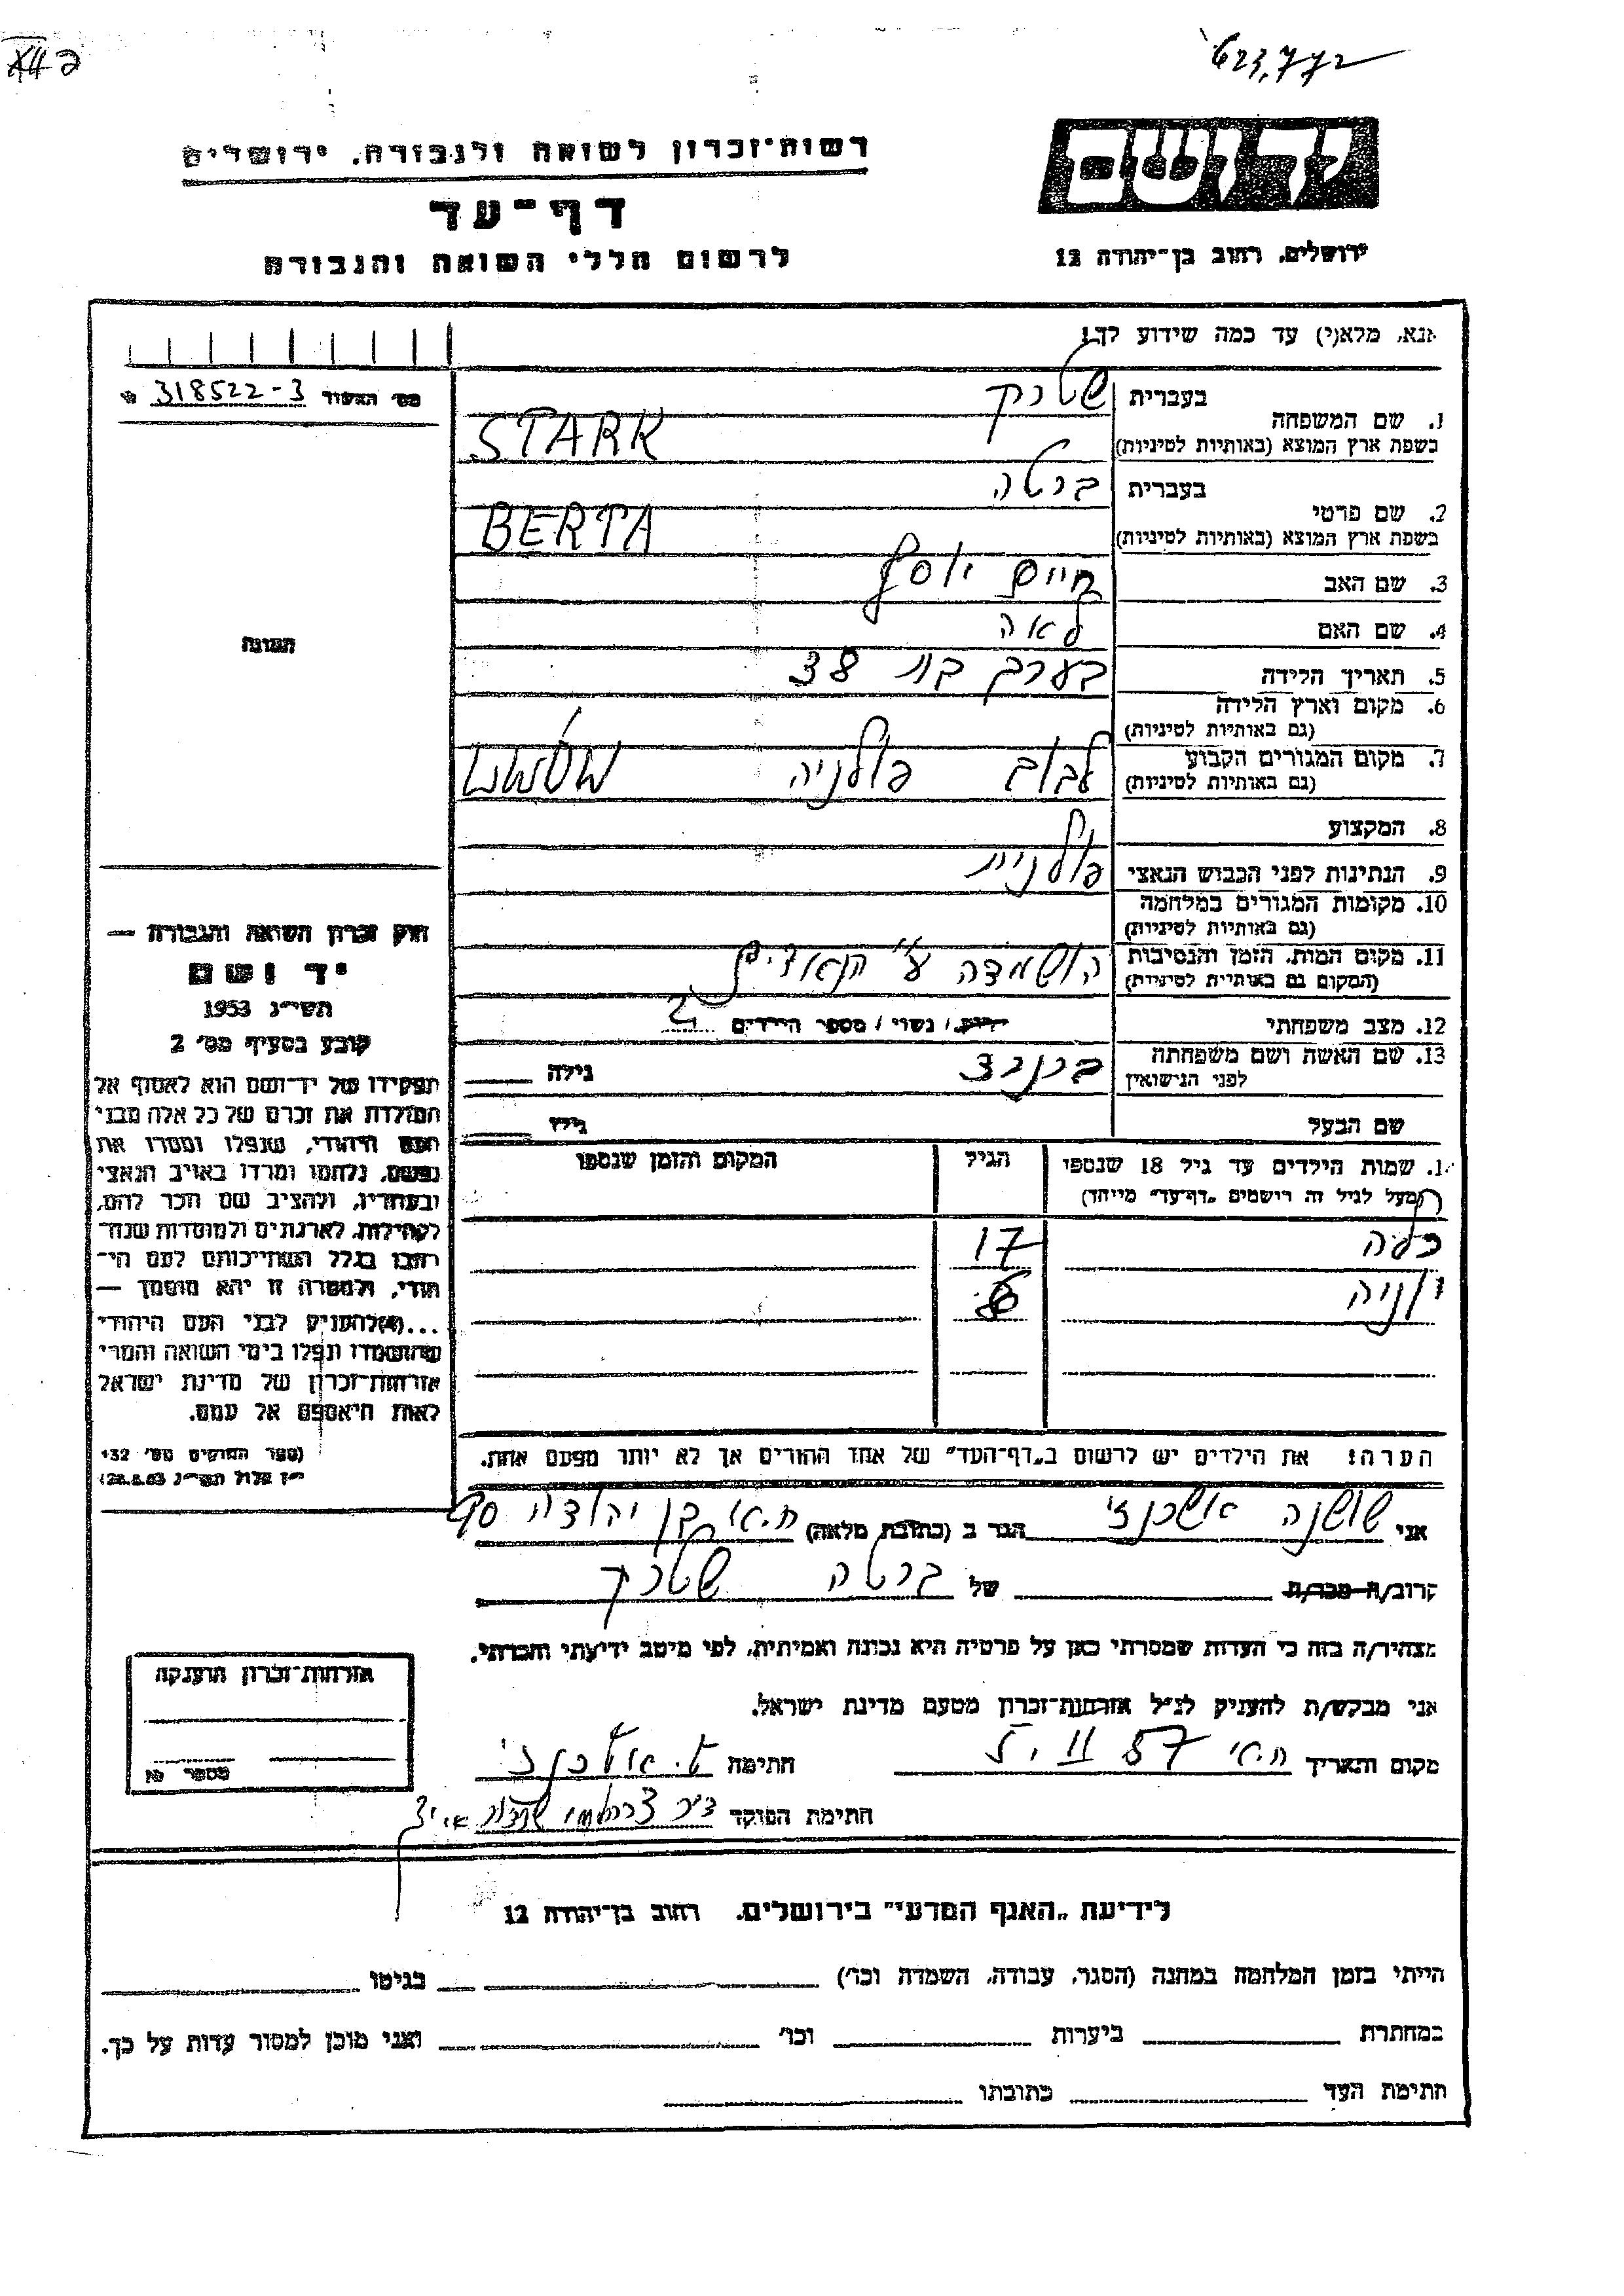 623,772
רשות־זכרון לשואה ולגבורה, ירושלים
דף־עד
לרשום חללי השואה והגבורה
יד ושם
ירושלים, רחוב בן־יהודה 12
אנא, מלא(י) עד כמה שידוע לך!
מס׳ האשור 318522-3
1. שם המשפחה
בעברית שטרק
בשפת ארץ המוצא (באותיות לטיניות) STARK
2. שם פרטי
בעברית ברטה
בשפת ארץ המוצא (באותיות לטיניות) BERTA
3. שם האב חיים יוסף
4. שם האם לאה
5. תאריך הלידה בערך בת 38
6. מקום וארץ הלידה
(גם באותיות לטיניות)
7. מקום המגורים הקבוע לבוב פולניה
(גם באותיות לטיניות)
8. המקצוע
9. הנתינות לפני הכבוש הנאצי פולנית
10. מקומות המגורים במלחמה
(גם באותיות לטיניות)
11. מקום המות, הזמן והנסיבות הושמדה ע״י הנאצים
(המקום גם באותיות לטיניות)
12. מצב משפחתי רווק / נשוי / מספר הילדים 2
13. שם האשה ושם משפחתה
לפני הנישואין גילה
שם הבעל גילו
התמונה
חוק זכרון השואה והגבורה —
יד ושם
תשי״ג 1953
קובע בסעיף מס׳ 2
תפקידו של יד־ושם הוא לאסוף אל
המולדת את זכרם של כל אלה מבני
העם היהודי, שנפלו ומסרו את
נפשם, נלחמו ומרדו באויב הנאצי
ובעוזריו, ולהציב שם וזכר להם,
לקהילות, לארגונים ולמוסדות שנח־
רבו בגלל השתייכותם לעם היה־
ודי, ולמטרה זו יהא מוסמך —
...(4) להעניק לבני העם היהודי
שהושמדו ונפלו בימי השואה והמרי
אזרחות־זכרון של מדינת ישראל
לאות היאספם אל עמם.
(ספר החוקים מס׳ 132
י״ז אלול תשי״ג 28.8.53)
שמות הילדים עד גיל 18 שנספו הגיל המקום והזמן שנספו
(מעל לגיל זה רושמים „דף־עד״ מיוחד)
כלה 17
יוניה 6
הערה: את הילדים יש לרשום ב„דף־העד״ של אחד ההורים אך לא יותר מפעם אחת.
אני שושנה אשכנזי הגר ב (כתובת מלאה) ת.א. בן יהודה 90
קרוב/ה מכר/ת של ברטה שטרק
מצהיר/ה בזה כי העדות שמסרתי כאן על פרטיה היא נכונה ואמיתית, לפי מיטב ידיעתי והכרתי.
אני מבקש/ת להעניק לנ״ל אזרחות־זכרון מטעם מדינת ישראל.
מקום ותאריך ת.א. 5. II 57 חתימה ש. אשכנזי
חתימת הפוקד
אזרחות־זכרון הוענקה
מספר
לידיעת „האגף המדעי״ בירושלים, רחוב בן־יהודה 12
הייתי בזמן המלחמה במחנה (הסגר, עבודה, השמדה וכו׳) בגיטו
במחתרת ביערות וכו׳ ואני מוכן למסור עדות על כך.
חתימת העד כתובתו